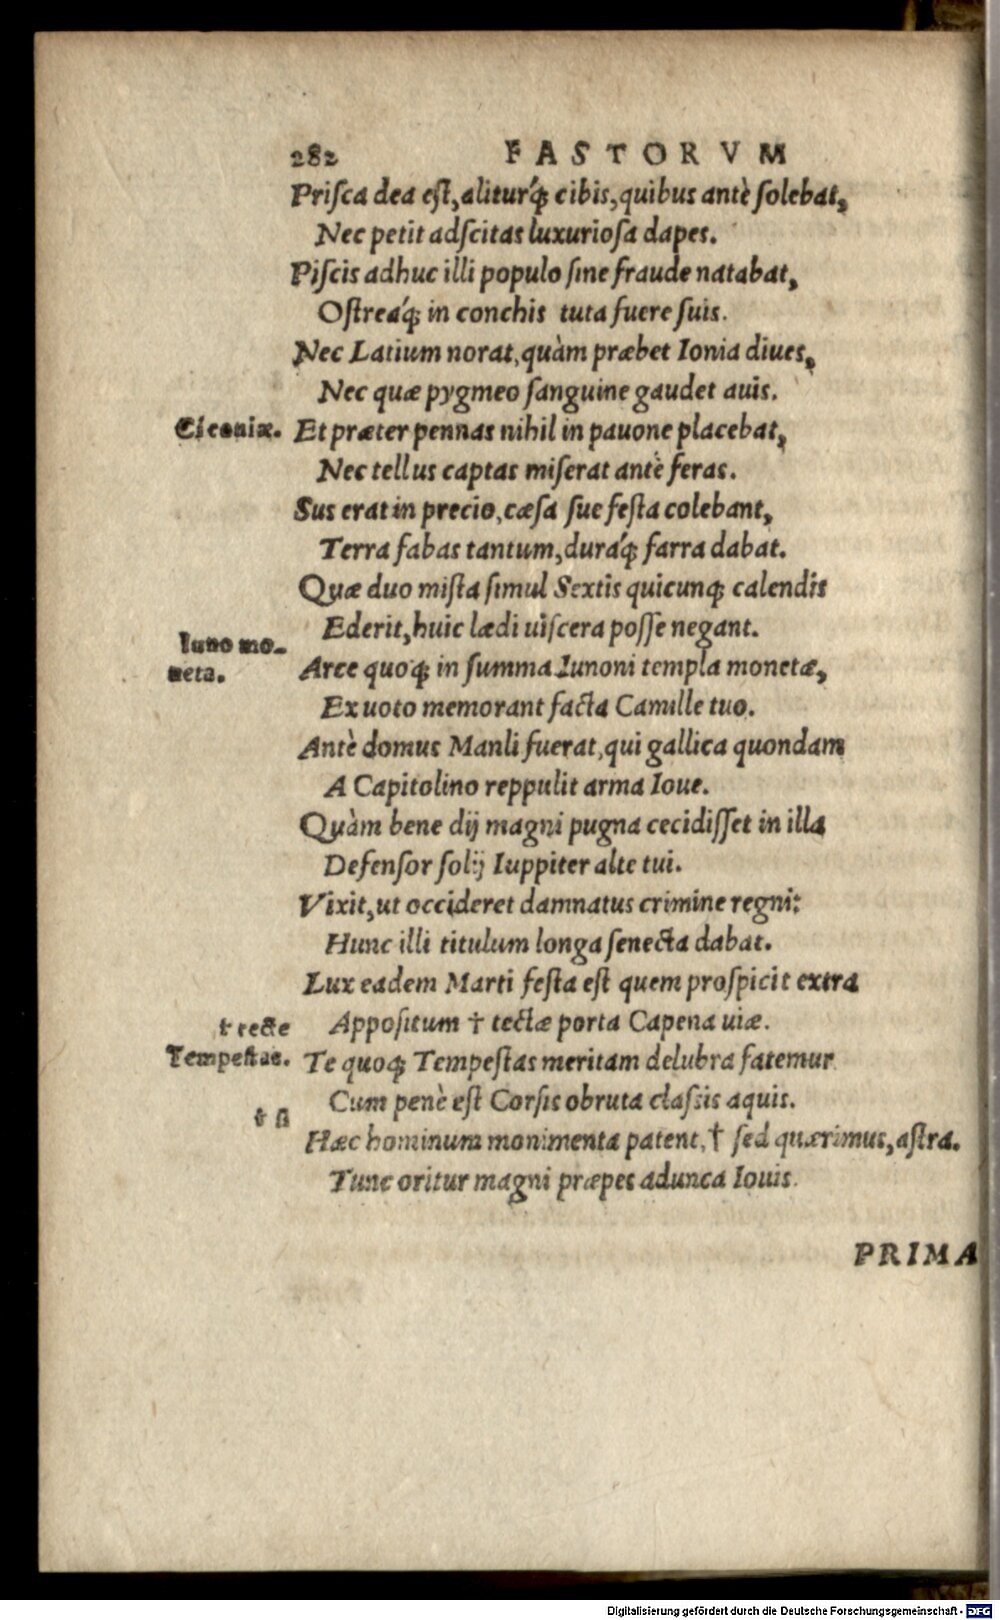 282 FASTORVM
Priſca dea eſt, alitur'q́; cibis, quibus antè ſolebat,
Nec petit adſcitas luxurioſa dapes.
Piſcis adhuc illi populo ſine fraude natabat,
Oſtreáq́; in conchis tuta fuere ſuis.
Nec Latium norat, quàm præbet Ionia diues,
Nec quæ pygmeo ſanguine gaudet auis.
Ciconiæ. Et præter pennas nihil in pauone placebat,
Nec tellus captas miſerat antè feras.
Sus erat in precio, cæſa ſue feſta colebant,
Terra fabas tantum, duráq́; farra dabat.
Quæ duo miſta ſimul Sextis quicunq; calendis
Ederit, huic lædi uiſcera poſſe negant.
Iuno mo-
neta. Arce quoq; in ſumma Iunoni templa monetæ,
Ex uoto memorant facta Camille tuo.
Antè domus Manli fuerat, qui gallica quondam
A Capitolino reppulit arma Ioue.
Quàm bene dij magni pugna cecidiſſet in illa
Defenſor ſolij Iuppiter alte tui.
Vixit, ut occideret damnatus crimine regni:
Hunc illi titulum longa ſenecta dabat.
Lux eadem Marti feſta eſt quem proſpicit extra
† recte Appoſitum † tectæ porta Capena uiæ.
Tempeſtas. Te quoq; Tempeſtas meritam delubra fatemur
Cum penè eſt Corſis obruta claſsis aquis.
† ſi Hæc hominum monimenta patent, † ſed quærimus, aſtra.
Tunc oritur magni præpes adunca Iouis.
PRIMA
Digitalisierung gefördert durch die Deutsche Forschungsgemeinschaft - DFG